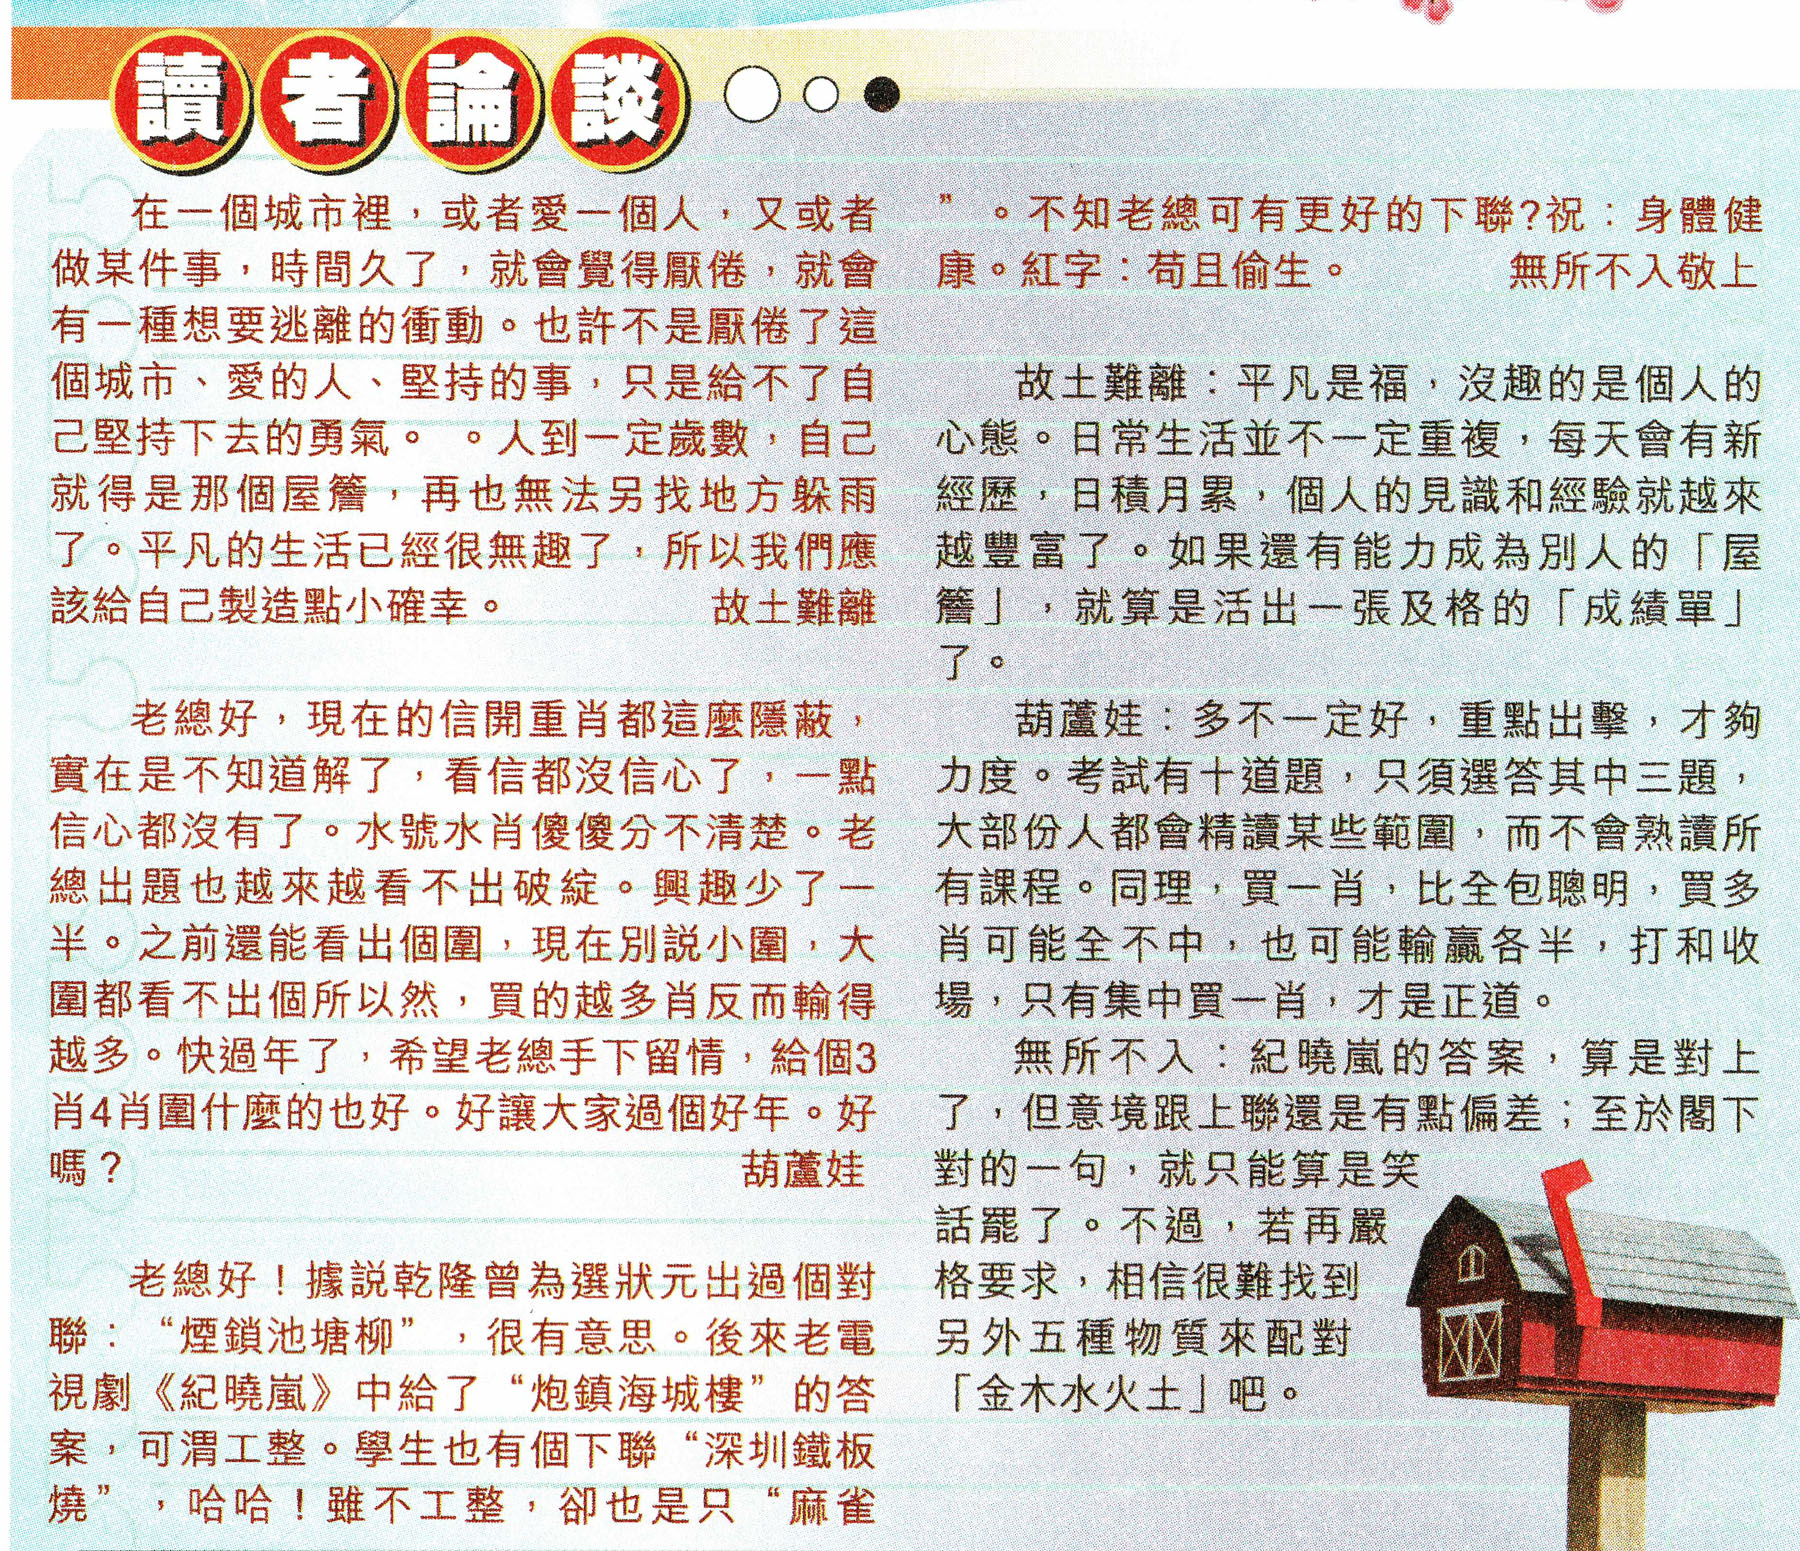 讀者論談
在一個城市裡，或者愛一個人，又或者
做某件事，時間久了，就會覺得厭倦，就會
有一種想要逃離的衝動。也許不是厭倦了這
個城市、愛的人、堅持的事，只是給不了自
己堅持下去的勇氣。 。人到一定歲數，自己
就得是那個屋簷，再也無法另找地方躲雨
了。平凡的生活已經很無趣了，所以我們應
該給自己製造點小確幸。 故土難離
老總好，現在的信開重肖都這麼隱蔽，
實在是不知道解了，看信都沒信心了，一點
信心都沒有了。水號水肖傻傻分不清楚。老
總出題也越來越看不出破綻。興趣少了一
半。之前還能看出個圍，現在別説小圍，大
圍都看不出個所以然，買的越多肖反而輸得
越多。快過年了，希望老總手下留情，給個3
肖4肖圍什麼的也好。好讓大家過個好年。好
嗎？ 葫蘆娃
老總好！據説乾隆曾為選狀元出過個對
聯：“煙鎖池塘柳”，很有意思。後來老電
視劇《紀曉嵐》中給了“炮鎮海城樓”的答
案，可渭工整。學生也有個下聯“深圳鐵板
燒”，哈哈！雖不工整，卻也是只“麻雀
”。不知老總可有更好的下聯?祝：身體健
康。紅字：苟且偷生。 無所不入敬上
故土難離：平凡是福，沒趣的是個人的
心態。日常生活並不一定重複，每天會有新
經歷，日積月累，個人的見識和經驗就越來
越豐富了。如果還有能力成為別人的「屋
簷」，就算是活出一張及格的「成績單」
了。
葫蘆娃：多不一定好，重點出擊，才夠
力度。考試有十道題，只須選答其中三題，
大部份人都會精讀某些範圍，而不會熟讀所
有課程。同理，買一肖，比全包聰明，買多
肖可能全不中，也可能輸贏各半，打和收
場，只有集中買一肖，才是正道。
無所不入：紀曉嵐的答案，算是對上
了，但意境跟上聯還是有點偏差；至於閣下
對的一句，就只能算是笑
話罷了。不過，若再嚴
格要求，相信很難找到
另外五種物質來配對
「金木水火土」吧。